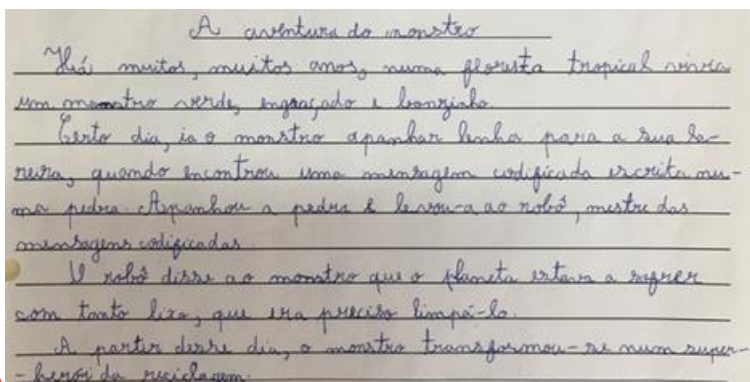 A aventura do monstro
Há muitos, muitos anos, numa floresta tropical vivia
um monstro verde, engraçado e bonzinho.
Certo dia, ia o monstro apanhar lenha para a sua la-
reira, quando encontrou uma mensagem codificada escrita nu-
ma pedra. Apanhou a pedra e levou-a ao robô, mestre das
mensagens codificadas.
O robô disse ao monstro que o planeta estava a sofrer
com tanto lixo, que era preciso limpá-lo.
A partir desse dia, o monstro transformou-se num super-
-herói da reciclagem.